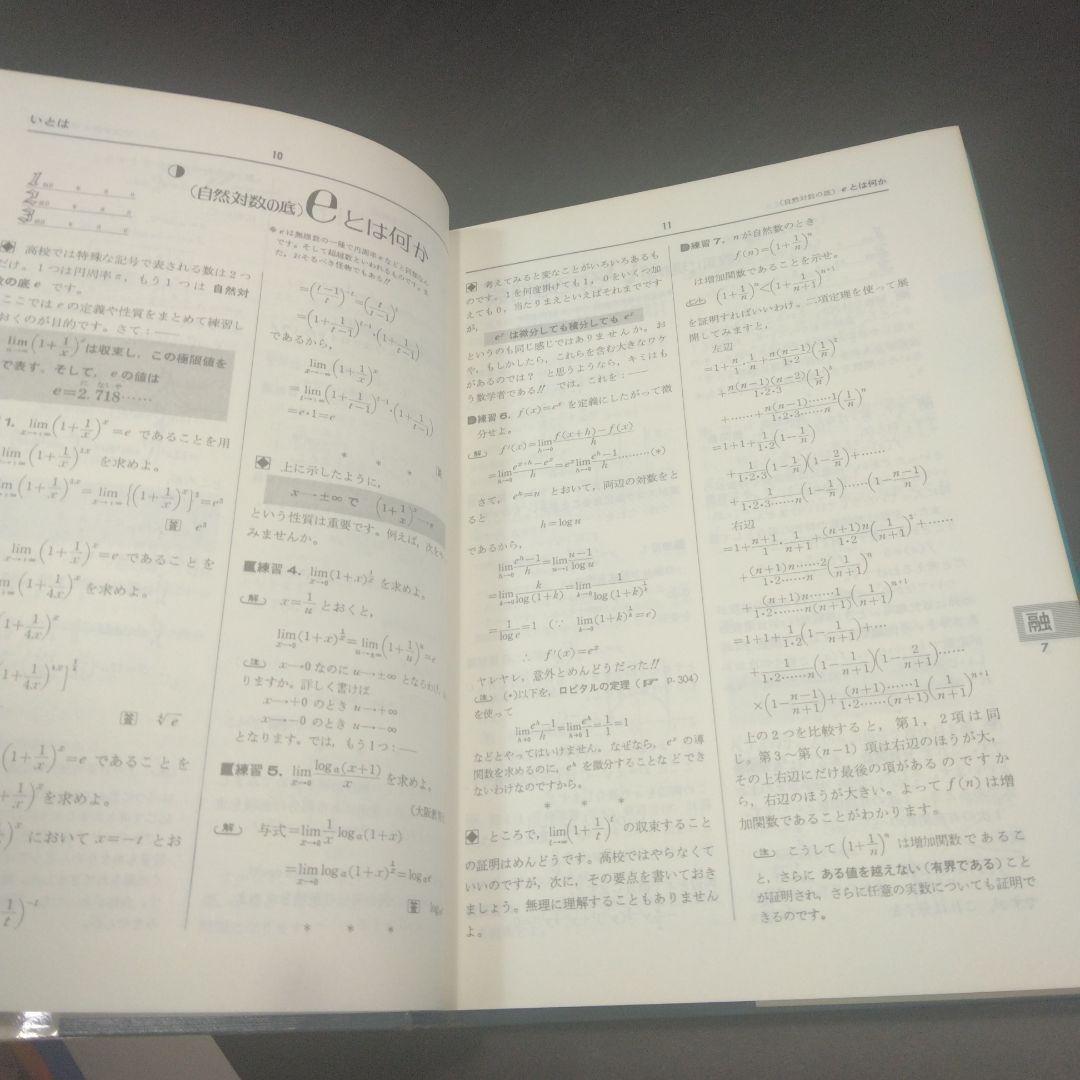 いとは
10
(自然対数の底) eとは何か
1
2
3
高校では特殊な記号で表される数は2つ
だけ。1つは円周率π, もう1つは 自然対
数の底 e です。
ここではeの定義や性質をまとめて練習し
おくのが目的です。さて:——
lim(1+1/x)^x は収束し, この極限値を
で表す。そして, eの値は
e=2.718……
1. lim(1+1/x)^x=e であることを用
lim(1+1/x)^3x を求めよ。
lim(1+1/x)^3x=lim{(1+1/x)^x}^3=e^3
答 e^3
lim(1+1/x)^x=e であることを
lim(1+1/4x)^x を求めよ。
(1+1/4x)^x
答 ⁴√e
(1+1/x)^x=e であることを
を求めよ。
において x=−t とお
※ eは無理数の一種で円周率πなどと同類なん
です。そして超越数といわれるものです。ま
た, おそるべき怪物でもある!!
=((t−1)/t)^−t=(t/(t−1))^t
=(1+1/(t−1))^t−1・(1+1/(t−1))
であるから,
lim x→−∞ (1+1/x)^x
=lim(1+1/(t−1))^t−1・(1+1/(t−1))
=e・1=e
* * *
上に示したように,
x→±∞で (1+1/x)^x→e
という性質は重要です。例えば, 次を
みませんか。
練習4. lim x→0 (1+x)^1/x を求めよ。
解 x=1/u とおくと,
lim x→0 (1+x)^1/x=lim u→±∞ (1+1/u)^u=e
注 x→0なのに u→±∞ となるわけ
りますか。詳しく書けば
x→+0 のとき u→+∞
x→−0 のとき u→−∞
となります。では, もう1つ:——
練習5. lim x→0 log_a(x+1)/x を求めよ。
(大阪教育
解 与式=lim x→0 1/x log_a(1+x)
=lim x→0 log_a(1+x)^1/x=log_a e
答 log_a e
* * *
11
(自然対数の底) eとは何か
考えてみると変なことがいろいろあるも
のです。1を何度掛けても1, 0をいくつ加
えても0, 当たりまえといえばそれまでです
が,
e^x は微分しても積分しても e^x
というのも同じ感じではありませんか。お
や, もしかしたら, これらを含む大きなワケ
があるのでは? と思うようなら, キミはも
う数学者である!! では, これを:——
練習6. f(x)=e^x を定義にしたがって微
分せよ。
解 f′(x)=lim h→0 (f(x+h)−f(x))/h
=lim h→0 (e^x+h−e^x)/h=e^x lim h→0 (e^h−1)/h………(*)
さて, e^h=u とおいて, 両辺の対数をと
ると
h=log u
であるから,
lim h→0 (e^h−1)/h=lim u→1 (u−1)/log u
=lim k→0 k/log(1+k)=lim k→0 1/log(1+k)^1/k
=1/log e=1 (∵ lim k→0 (1+k)^1/k=e)
∴ f′(x)=e^x
ヤレヤレ, 意外とめんどうだった!!
注 (*)以下を, ロピタルの定理(☞ p.304)
を使って
lim h→0 (e^h−1)/h=lim h→0 e^h/1=1/1=1
などとやってはいけません。なぜなら, e^x の導
関数を求めるのに, e^h を微分することなどでき
ないわけなのですから。
* * *
ところで, lim(1+1/t)^t の収束すること
の証明はめんどうです。高校ではやらなくて
いいのですが, 次に, その要点を書いておき
ましょう。無理に理解することもありません
よ。
練習7. nが自然数のとき
f(n)=(1+1/n)^n
は増加関数であることを示せ。
(1+1/n)^n<(1+1/(n+1))^n+1
を証明すればいいわけ。二項定理を使って展
開してみますと,
左辺
=1+n/1・1/n+n(n−1)/1・2(1/n)^2
+n(n−1)(n−2)/1・2・3(1/n)^3
+……+n(n−1)……1/1・2・3……n(1/n)^n
=1+1+1/1・2(1−1/n)
+1/1・2・3(1−1/n)(1−2/n)+……
+1/1・2・3……n(1−1/n)……(1−(n−1)/n)
右辺
=1+(n+1)/1・1/(n+1)+(n+1)n/1・2(1/(n+1))^2+……
+(n+1)n……2/1・2……n(1/(n+1))^n
+(n+1)n……1/1・2……n(n+1)(1/(n+1))^n+1
=1+1+1/1・2(1−1/(n+1))+…
+1/1・2……n(1−1/(n+1))(1−2/(n+1))……
×(1−(n−1)/(n+1))+(n+1)……1/1・2……(n+1)(1/(n+1))^n+1
上の2つを比較すると, 第1, 2項は同
じ。第3〜第(n−1)項は右辺のほうが大,
その上右辺にだけ最後の項があるのですか
ら, 右辺のほうが大きい。よって f(n) は増
加関数であることがわかります。
注 こうして (1+1/n)^n は増加関数であるこ
と, さらに ある値を越えない(有界である)こと
が証明され, さらに任意の実数についても証明で
きるのです。
融
7